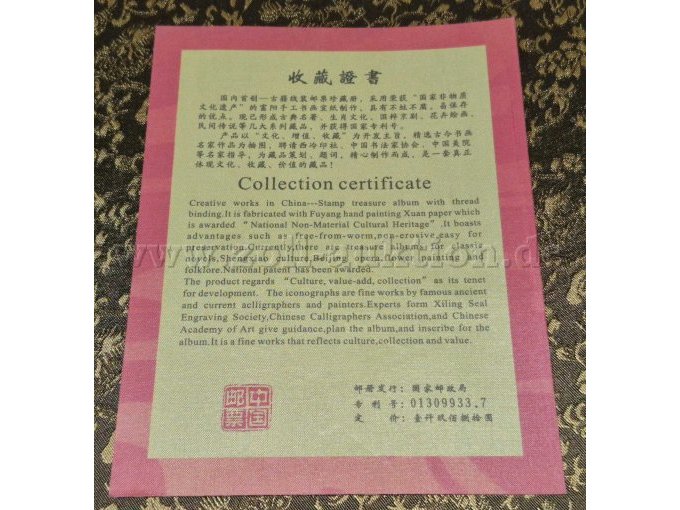 收藏證書
國內首創—古籍线装邮票珍藏册，采用荣获“国家非物质
文化遗产”的富阳手工书画宣纸制作，具有不蛀不腐、易保存
的优点。现已形成古典名著、生肖文化、国粹京剧、花卉绘画、
民间传说等几大系列藏品，并获得国家专利号。
产品以“文化、增值、收藏”为开发主旨，精选古今书画
名家作品为插图，聘请西泠印社、中国书法家协会、中国美院
等名家指导，为藏品策划、题词，精心制作而成，是一套真正
体现文化、收藏、价值的藏品！
Collection certificate
Creative works in China---Stamp treasure album with thread
binding.It is fabricated with Fuyang hand painting Xuan paper which
is awarded “National Non-Material Cultural Heritage” .It boasts
advantages such as free-from-worm,non-erosive,easy for
preservation.Currently,there are treasure albums for classic
novels,Shengxiao culture,Beijing opera,flower painting and
folklore.National patent has been awarded.
The product regards “Culture, value-add, collection” as its tenet
for development. The iconographs are fine works by famous ancient
and current aclligraphers and painters.Experts form Xiling Seal
Engraving Society,Chinese Calligraphers Association,and Chinese
Academy of Art give guidance,plan the album,and inscribe for the
album.It is a fine works that reflects culture,collection and value.
中国
邮票
邮册发行：國家邮政局
专利号：01309933.7
定价：壹仟玖佰捌拾圆